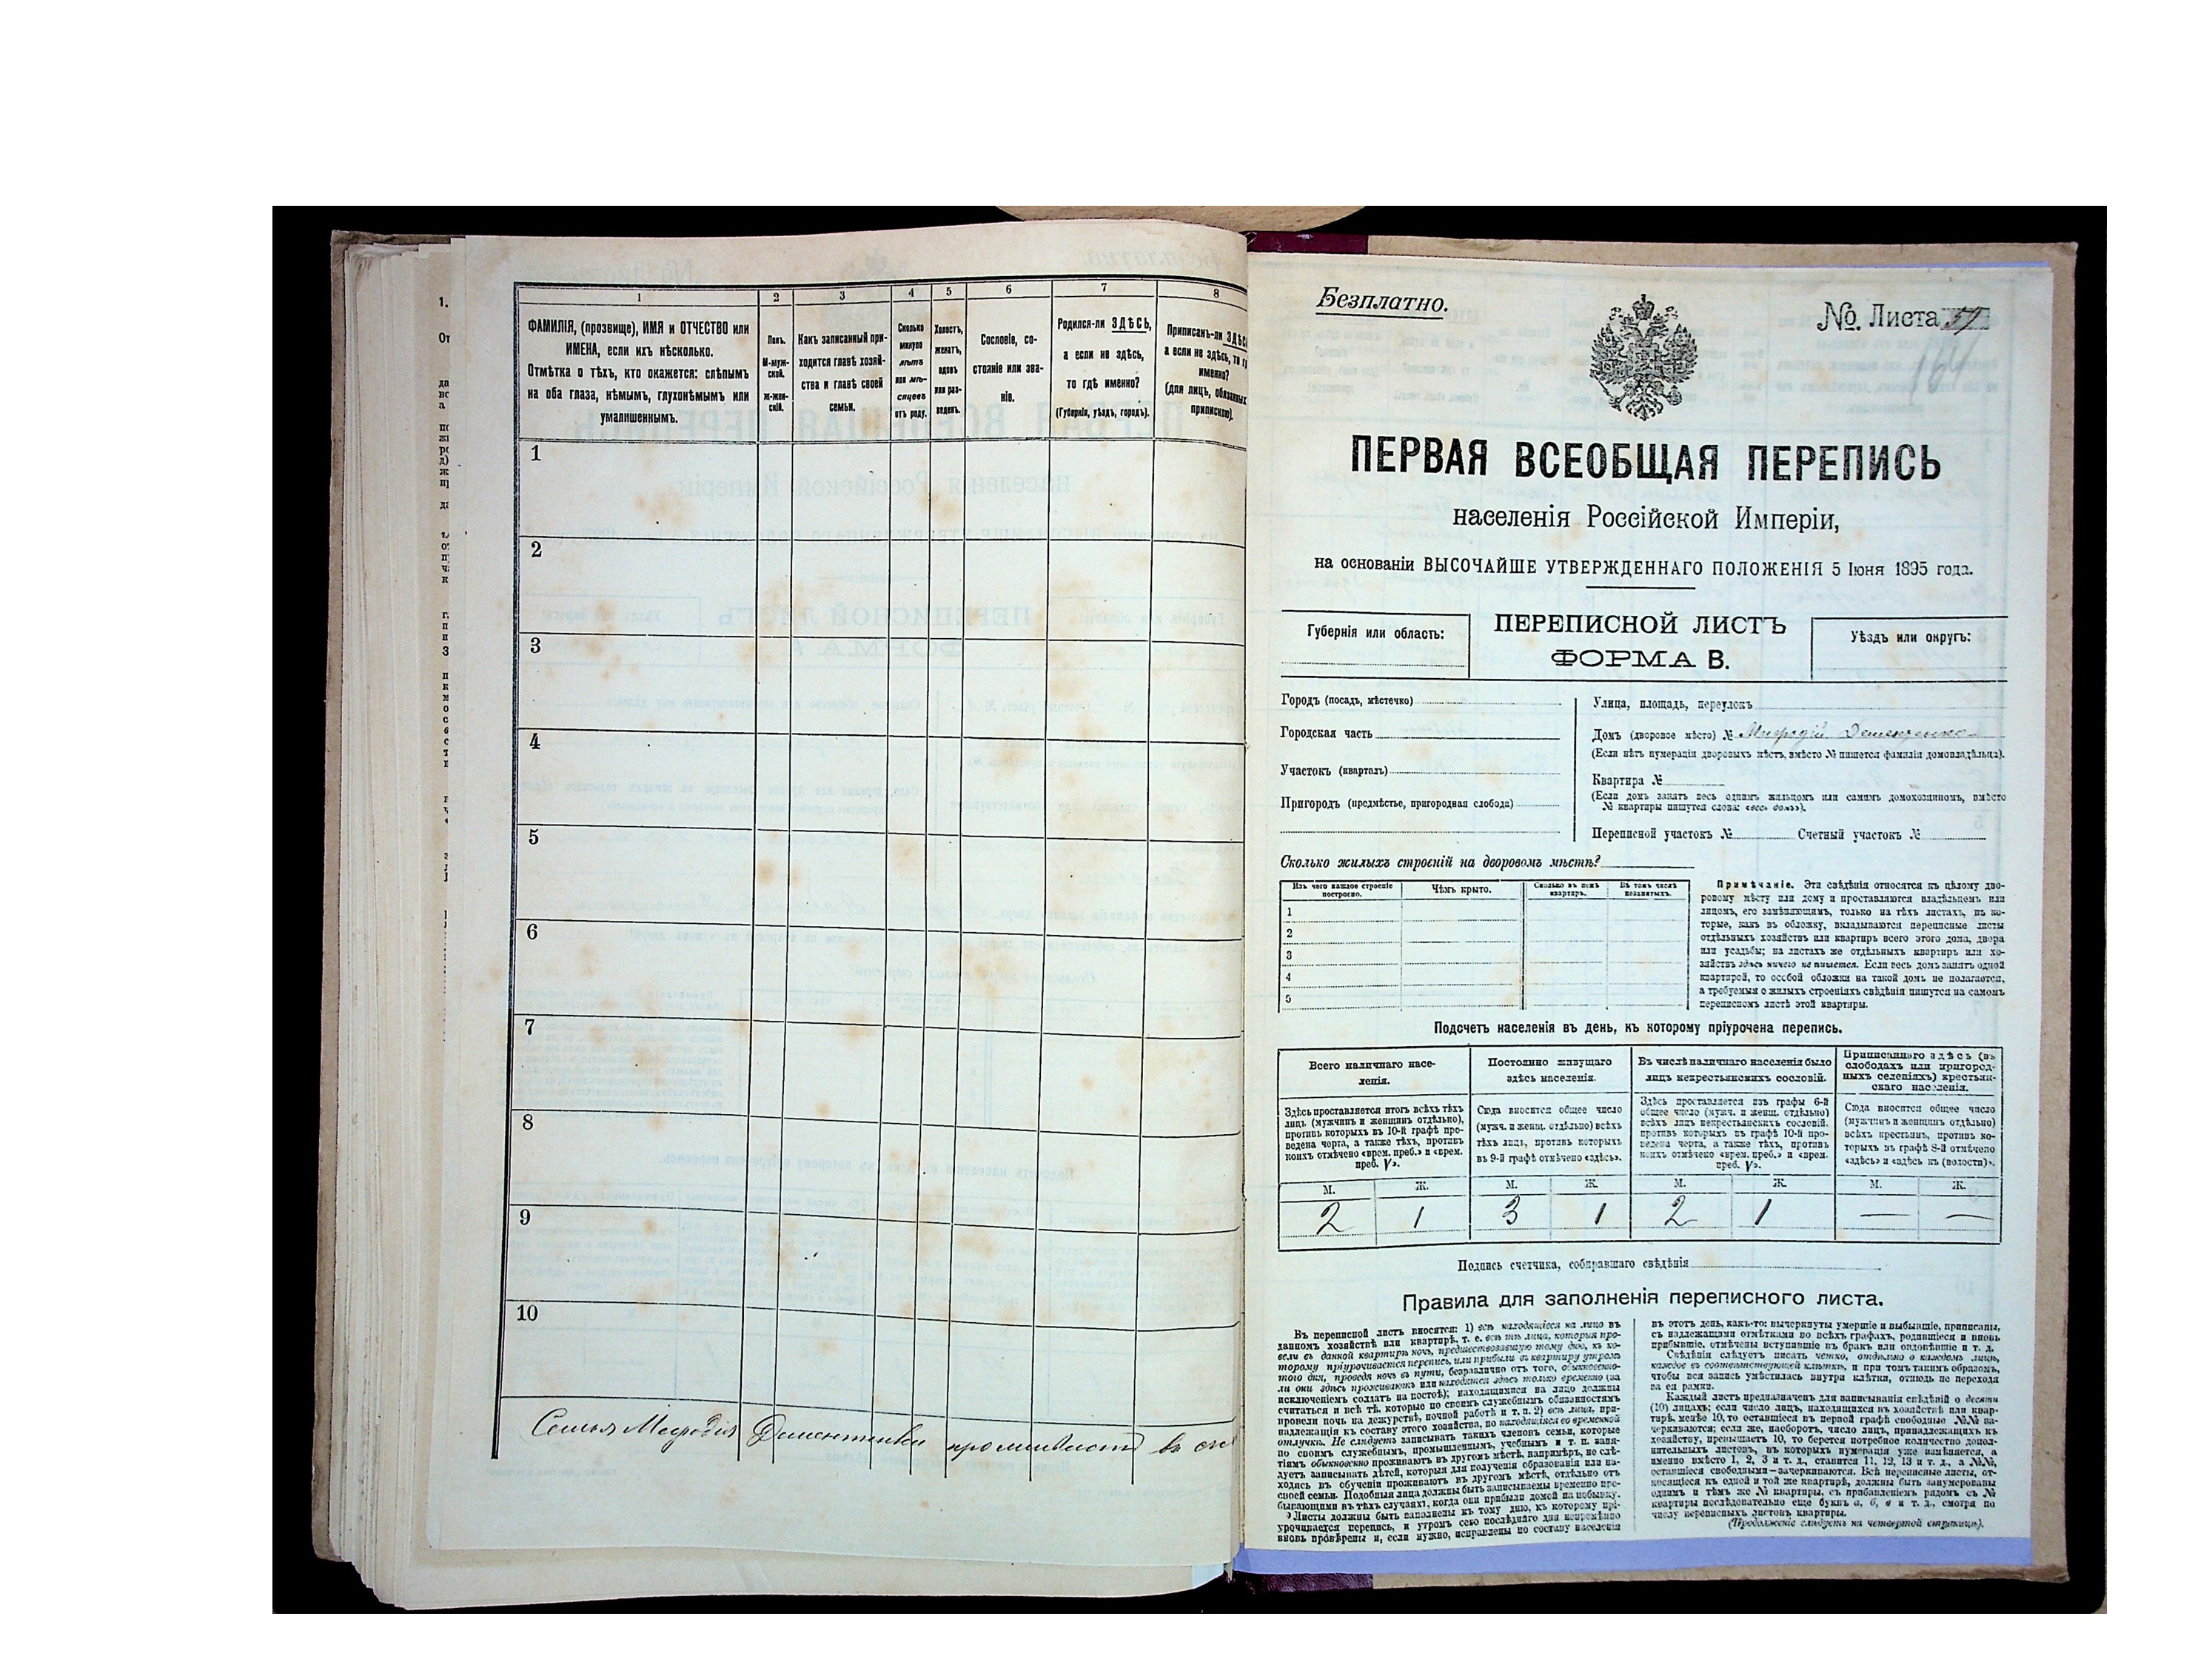 1 2 3 4 5 6 7 8
ФАМИЛІЯ, (прозвище), ИМЯ и ОТЧЕСТВО или
ИМЕНА, если ихъ нѣсколько.
Отмѣтка о тѣхъ, кто окажется: слѣпымъ
на оба глаза, нѣмымъ, глухонѣмымъ или
умалишеннымъ.
Полъ.
М-муж-
ской.
ж-жен-
скій.
Какъ записанный при-
ходится главѣ хозяй-
ства и главѣ своей
семьи.
Сколько
минуло
лѣтъ
или мѣ-
сяцевъ
отъ роду.
Холостъ,
женатъ,
вдовъ
или раз-
веденъ.
Сословіе, со-
стояніе или зва-
ніе.
Родился-ли ЗДѢСЬ,
а если не здѣсь,
то гдѣ именно?
(Губернія, уѣздъ, городъ).
Приписанъ-ли ЗДѢСЬ
а если не здѣсь, то
именно?
(для лицъ, обязанныхъ
припискою).
1
2
3
4
5
6
7
8
9
10
Семья
Безплатно.
№ Листа 59
ПЕРВАЯ ВСЕОБЩАЯ ПЕРЕПИСЬ
населенія Россійской Имперіи,
на основаніи ВЫСОЧАЙШЕ УТВЕРЖДЕННАГО ПОЛОЖЕНІЯ 5 Іюня 1895 года.
Губернія или область:
ПЕРЕПИСНОЙ ЛИСТЪ
ФОРМА В.
Уѣздъ или округъ:
Городъ (посадъ, мѣстечко)
Городская часть
Участокъ (кварталъ)
Пригородъ (предмѣстье, пригородная слобода)
Улица, площадь, переулокъ
Домъ (дворовое мѣсто) №
(Если нѣтъ нумераціи дворовыхъ мѣстъ, вмѣсто № пишется фамилія домовладѣльца).
Квартира №
(Если домъ занятъ весь однимъ жильцомъ или самимъ домохозяиномъ, вмѣсто
№ квартиры пишутся слова: «весь домъ»).
Переписной участокъ № Счетный участокъ №
Сколько жилыхъ строеній на дворовомъ мѣстѣ?
Изъ чего каждое строеніе
построено.
Чѣмъ крыто.
Сколько въ немъ
квартиръ.
Въ томъ числѣ
незанятыхъ.
1
2
3
4
5
Примѣчаніе. Эти свѣдѣнія относятся къ цѣлому дво-
ровому мѣсту или дому и проставляются владѣльцемъ или
лицомъ, его замѣняющимъ, только на тѣхъ листахъ, въ ко-
торые, какъ въ обложку, вкладываются переписные листы
отдѣльныхъ хозяйствъ или квартиръ всего этого дома, двора
или усадьбы; на листахъ же отдѣльныхъ квартиръ или хо-
зяйствъ здѣсь ничего не пишется. Если весь домъ занятъ одной
квартирой, то особой обложки на такой домъ не полагается,
а требуемыя о жилыхъ строеніяхъ свѣдѣнія пишутся на самомъ
переписномъ листѣ этой квартиры.
Подсчетъ населенія въ день, къ которому пріурочена перепись.
Всего наличнаго насе-
ленія.
Постоянно живущаго
здѣсь населенія.
Въ числѣ наличнаго населенія было
лицъ некрестьянскихъ сословій.
Приписаннаго здѣсь (въ
слободахъ или пригород-
ныхъ селеніяхъ) крестьян-
скаго населенія.
Здѣсь проставляется итогъ всѣхъ тѣхъ
лицъ (мужчинъ и женщинъ отдѣльно),
противъ которыхъ въ 10-й графѣ про-
ведена черта, а также тѣхъ, противъ
коихъ отмѣчено «врем. преб.» и «врем.
преб. V».
Сюда вносится общее число
(мужч. и женщ. отдѣльно) всѣхъ
тѣхъ лицъ, противъ которыхъ
въ 9-й графѣ отмѣчено «здѣсь».
Здѣсь проставляется изъ графы 6-й
общее число (мужч. и женщ. отдѣльно)
всѣхъ лицъ некрестьянскихъ сословій,
противъ которыхъ въ графѣ 10-й про-
ведена черта, а также тѣхъ, противъ
коихъ отмѣчено «врем. преб.» и «врем.
преб. V».
Сюда вносится общее число
(мужчинъ и женщинъ отдѣльно)
всѣхъ крестьянъ, противъ ко-
торыхъ въ графѣ 8-й отмѣчено
«здѣсь» и «здѣсь къ (волости)».
М. Ж. М. Ж. М. Ж. М. Ж.
2 1 3 1 2 1 — —
Подпись счетчика, собиравшаго свѣдѣнія
Правила для заполненія переписного листа.
Въ переписной листъ вносятся: 1) всѣ находящіеся на лицо въ
данномъ хозяйствѣ или квартирѣ, т. е. всѣ тѣ лица, которыя про-
вели въ данной квартирѣ ночь, предшествовавшую тому дню, къ ко-
торому пріурочивается перепись, или прибыли въ квартиру утромъ
того дня, проведя ночь въ пути, безразлично отъ того, обыкновенно-
ли они здѣсь проживаютъ или находятся здѣсь только временно (за
исключеніемъ солдатъ на постоѣ); находящимися на лицо должны
считаться и всѣ тѣ, которые по своимъ служебнымъ обязанностямъ
провели ночь на дежурствѣ, ночной работѣ и т. п. 2) всѣ лица, при-
надлежащія къ составу этого хозяйства, но находящіяся во временной
отлучкѣ. Не слѣдуетъ записывать такихъ членовъ семьи, которые
по своимъ служебнымъ, промышленнымъ, учебнымъ и т. п. заня-
тіямъ обыкновенно проживаютъ въ другомъ мѣстѣ, напримѣръ, не слѣ-
дуетъ записывать дѣтей, которыя для полученія образованія или на-
ходясь въ обученіи проживаютъ въ другомъ мѣстѣ, отдѣльно отъ
своей семьи. Подобныя лица должны быть записываемы временно пре-
бывающими въ тѣхъ случаяхъ, когда они прибыли домой на побывку.
Листы должны быть наполнены къ тому дню, къ которому прі-
урочивается перепись, и утромъ сего послѣдняго дня непремѣнно
вновь провѣрены и, если нужно, исправлены по составу населенія
въ этотъ день, какъ-то: вычеркнуты умершіе и выбывшіе, приписаны,
съ надлежащими отмѣтками во всѣхъ графахъ, родившіеся и вновь
прибывшіе, отмѣчены вступившіе въ бракъ или овдовѣвшіе и т. д.
Свѣдѣнія слѣдуетъ писать четко, отдѣльно о каждомъ лицѣ,
каждое въ соотвѣтствующей клѣткѣ, и при томъ такимъ образомъ,
чтобы вся запись умѣстилась внутри клѣтки, отнюдь не переходя
за ея рамки.
Каждый листъ предназначенъ для записыванія свѣдѣній о десяти
(10) лицахъ; если число лицъ, находящихся въ хозяйствѣ или квар-
тирѣ, менѣе 10, то оставшіеся въ первой графѣ свободные №№ за-
черкиваются; если же, наоборотъ, число лицъ, принадлежащихъ къ
хозяйству, превышаетъ 10, то берется потребное количество допол-
нительныхъ листовъ, въ которыхъ нумерація уже измѣняется, а
именно вмѣсто 1, 2, 3 и т. д., ставится 11, 12, 13 и т. д., а №№,
оставшіеся свободными—зачеркиваются. Всѣ переписные листы, от-
носящіеся къ одной и той же квартирѣ, должны быть занумерованы
однимъ и тѣмъ же № квартиры, съ прибавленіемъ рядомъ съ №
квартиры послѣдовательно еще буквъ а, б, в и т. д., смотря по
числу переписныхъ листовъ квартиры.
(Продолженіе слѣдуетъ на четвертой страницѣ).